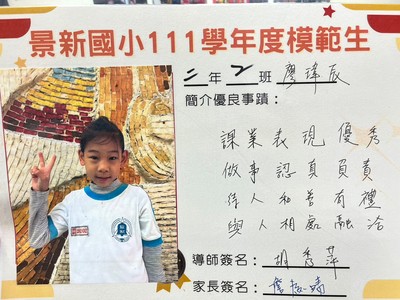 景新國小111學年度模範生
二年2班廖瑋辰
簡介優良事蹟:
課業表現優秀
做事認真負責
待人和善有禮
與人相處融洽
導師簽名:胡秀萍
家長簽名: